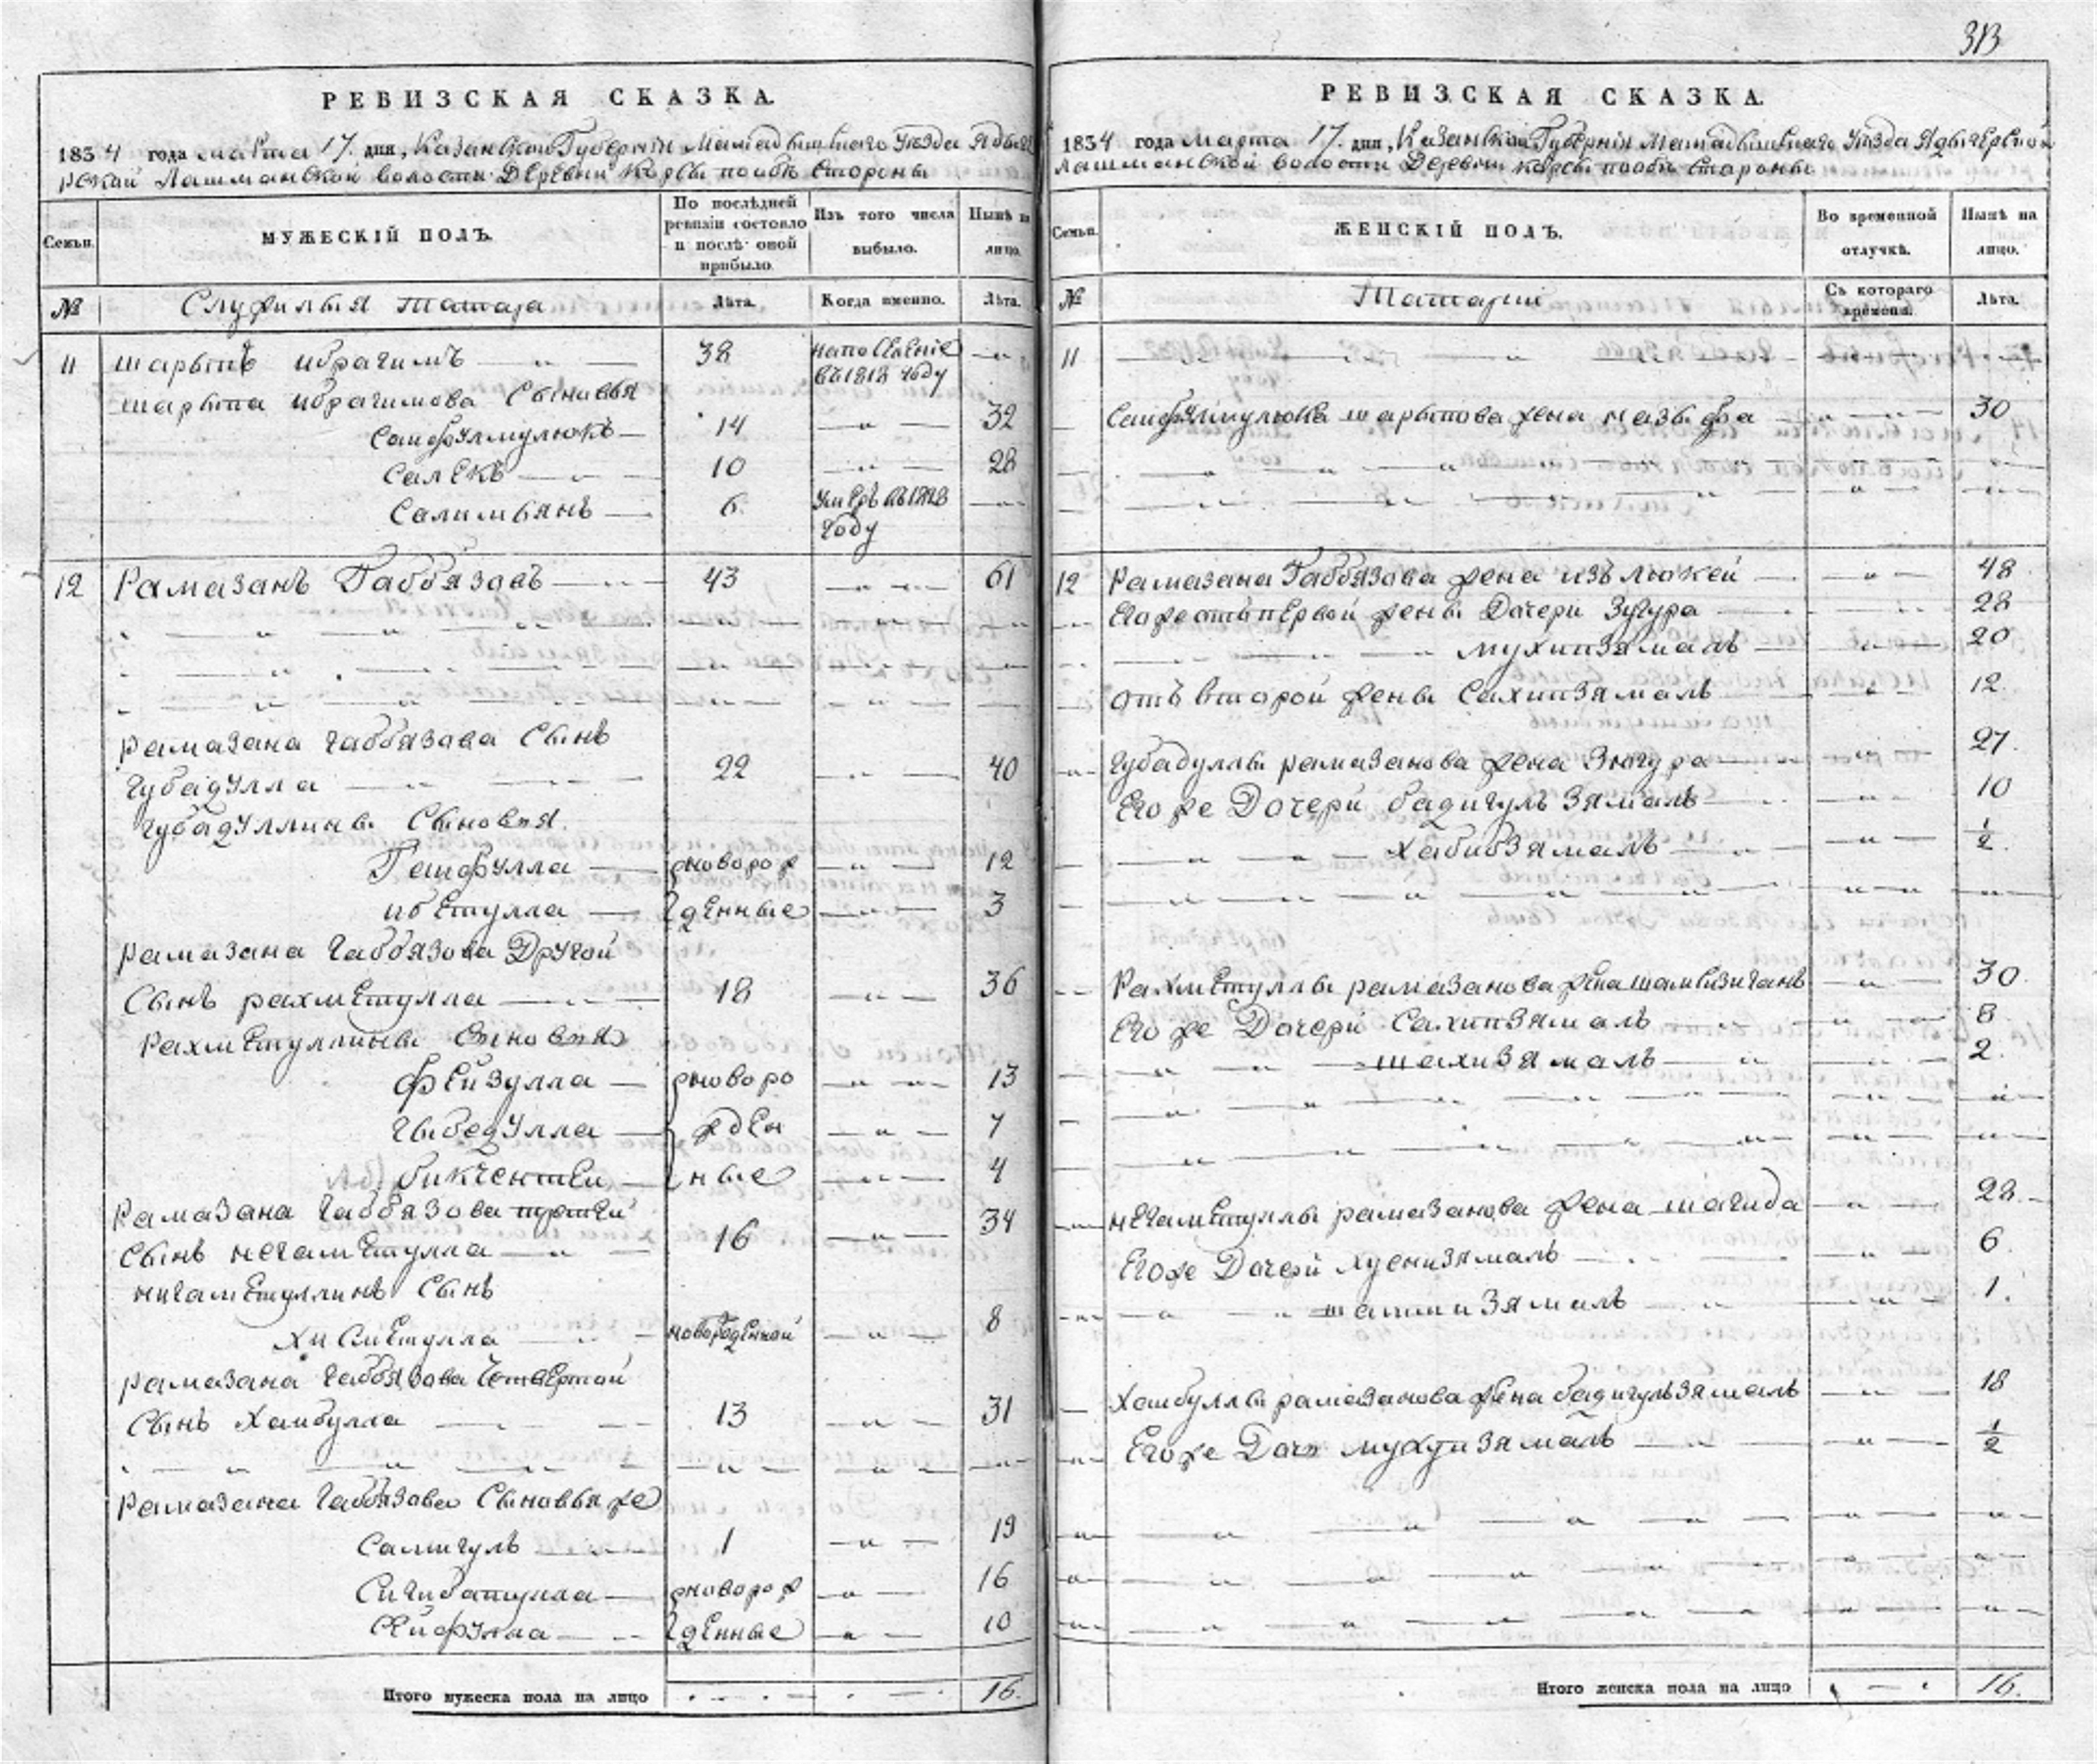 313
РЕВИЗСКАЯ СКАЗКА.
1834 года марта 17. дня, Казанской Губернии Мамадышскаго Уезда Ядыге
рской Лашманской волости Деревни Корсы пообе стороны
Семьи.
МУЖЕСКІЙ ПОЛЪ.
По послѣдней ревизіи состояло и послѣ оной прибыло.
Изъ того числа выбыло.
Нынѣ на лицо.
№
Служилыя татара
Лѣта.
Когда именно.
Лѣта.
11 шарыпъ ибрагимъ 38 на поселение
въ 1818 году
шарыпа ибрагимова Сыновья
Сайфулмулюкъ 14 32
Салекъ 10 28
Салимьянъ 6. Умеръ въ 1828
году
12 Рамазанъ Габбязовъ 43 61
рамазана габбязова Сынъ
губадулла 22 40
губадуллины Сыновья
Гайфулла новорож 12
ибетулла денные 3
рамазана габбязова Другой
Сынъ рахметулла 18 36
рахметуллины Сыновья
фейзулла новоро 13
гыбедулла жден 7
бикчентей ные 4
Рамазана габбязова третей
Сынъ негаметулла 16 34
нигаметуллинъ Сынъ
Хисметулла новорожденной 8
рамазана габбязова Четвертой
Сынъ Хайбулла 13 31
Рамазана габбязова Сыновья же
Самигулъ 1 19
Сигибатулла новорож 16
Сейфулла денные 10
Итого мужеска пола на лицо 16.
РЕВИЗСКАЯ СКАЗКА.
1834 года марта 17. дня, Казанской Губернии Мамадышскаго Уезда Ядыгерской
Лашманской волости Деревни корсы пообе стороны
Семьи.
ЖЕНСКІЙ ПОЛЪ.
Во временной отлучкѣ.
Нынѣ на лицо.
№
Татарки
Съ котораго времени.
Лѣта.
11
Сайфулмулюка шарыпова жена назыфа 30
12 Рамазана Габбязова жена изълюкей 48
Егоже отъ первой жены Дочери Зугура 28
мухипзямалъ 20
отъ второй жены Сахипзямалъ 12
губадуллы рамазанова жена Зюгура 27.
Егоже Дочери бадигулъзямалъ 10
хабибзямалъ 1/2.
Рахметуллы рамазанова жена шамсизиганъ 30.
Егоже Дочери Сахипзямалъ 8
шахизямалъ 2.
негаметуллы рамазанова жена шагида 28.
Егоже Дочери хуснизямалъ 6.
шамизямалъ 1.
Хайбуллы рамазанова жена бадигулъзямалъ 18
Егоже Дочъ мухузямалъ 1/2
Итого женска пола на лицо 16.